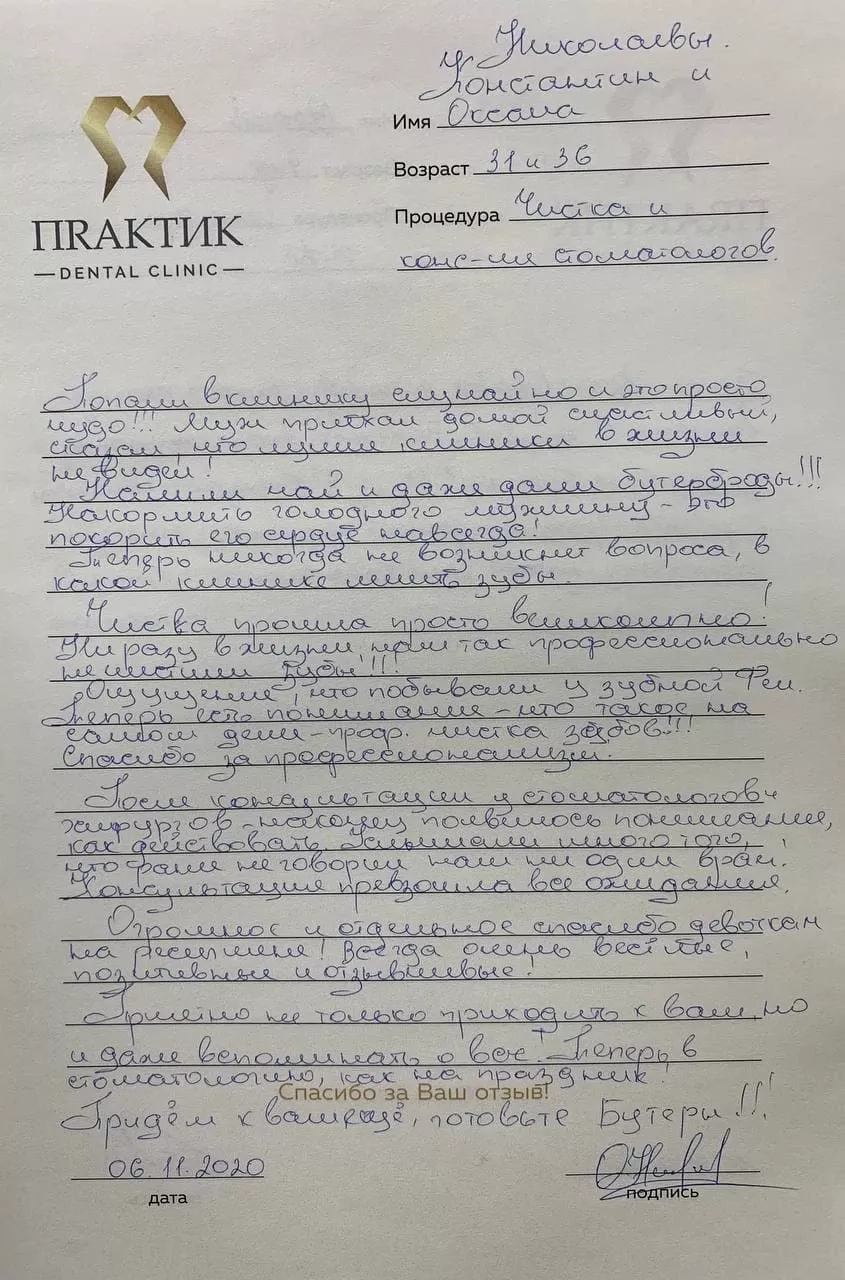 Николаевы.
Константин и
Имя Оксана
Возраст 31 и 36
Процедура Чистка и
конс-ии стоматологов.
ПRАКТИК
DENTAL CLINIC
Попали в клинику случайно и это просто
чудо!!! Муж приехал домой счастливый,
сказал, что лучше клиники в жизни
не видел!
Налили чай и даже дали бутерброды!!!
Накормить голодного мужчину - это
покорить его сердце навсегда!
Теперь никогда не возникнет вопроса, в
какой клинике лечить зубы.
Чистка прошла просто великолепно!
Ни разу в жизни нам так профессионально
не чистили зубы!!!
Ощущение, что побывали у зубной Феи.
Теперь есть понимание - что такое на
самом деле - проф. чистка зубов!!!
Спасибо за профессионализм.
После консультации у стоматологов
хирургов - наконец появилось понимание,
как действовать. Услышали много того,
что ранее не говорил нам ни один врач!
Консультация превзошла все ожидания.
Огромное и отдельное спасибо девочкам
на ресепшене! Всегда очень весёлые,
позитивные и отзывчивые!
Приятно не только приходить к вам, но
и даже вспоминать о вас! Теперь в
стоматологию, как на праздник!
Спасибо за Ваш отзыв!
Придём к вам ещё, готовьте Бутеры!!!
06.11.2020
дата
подпись